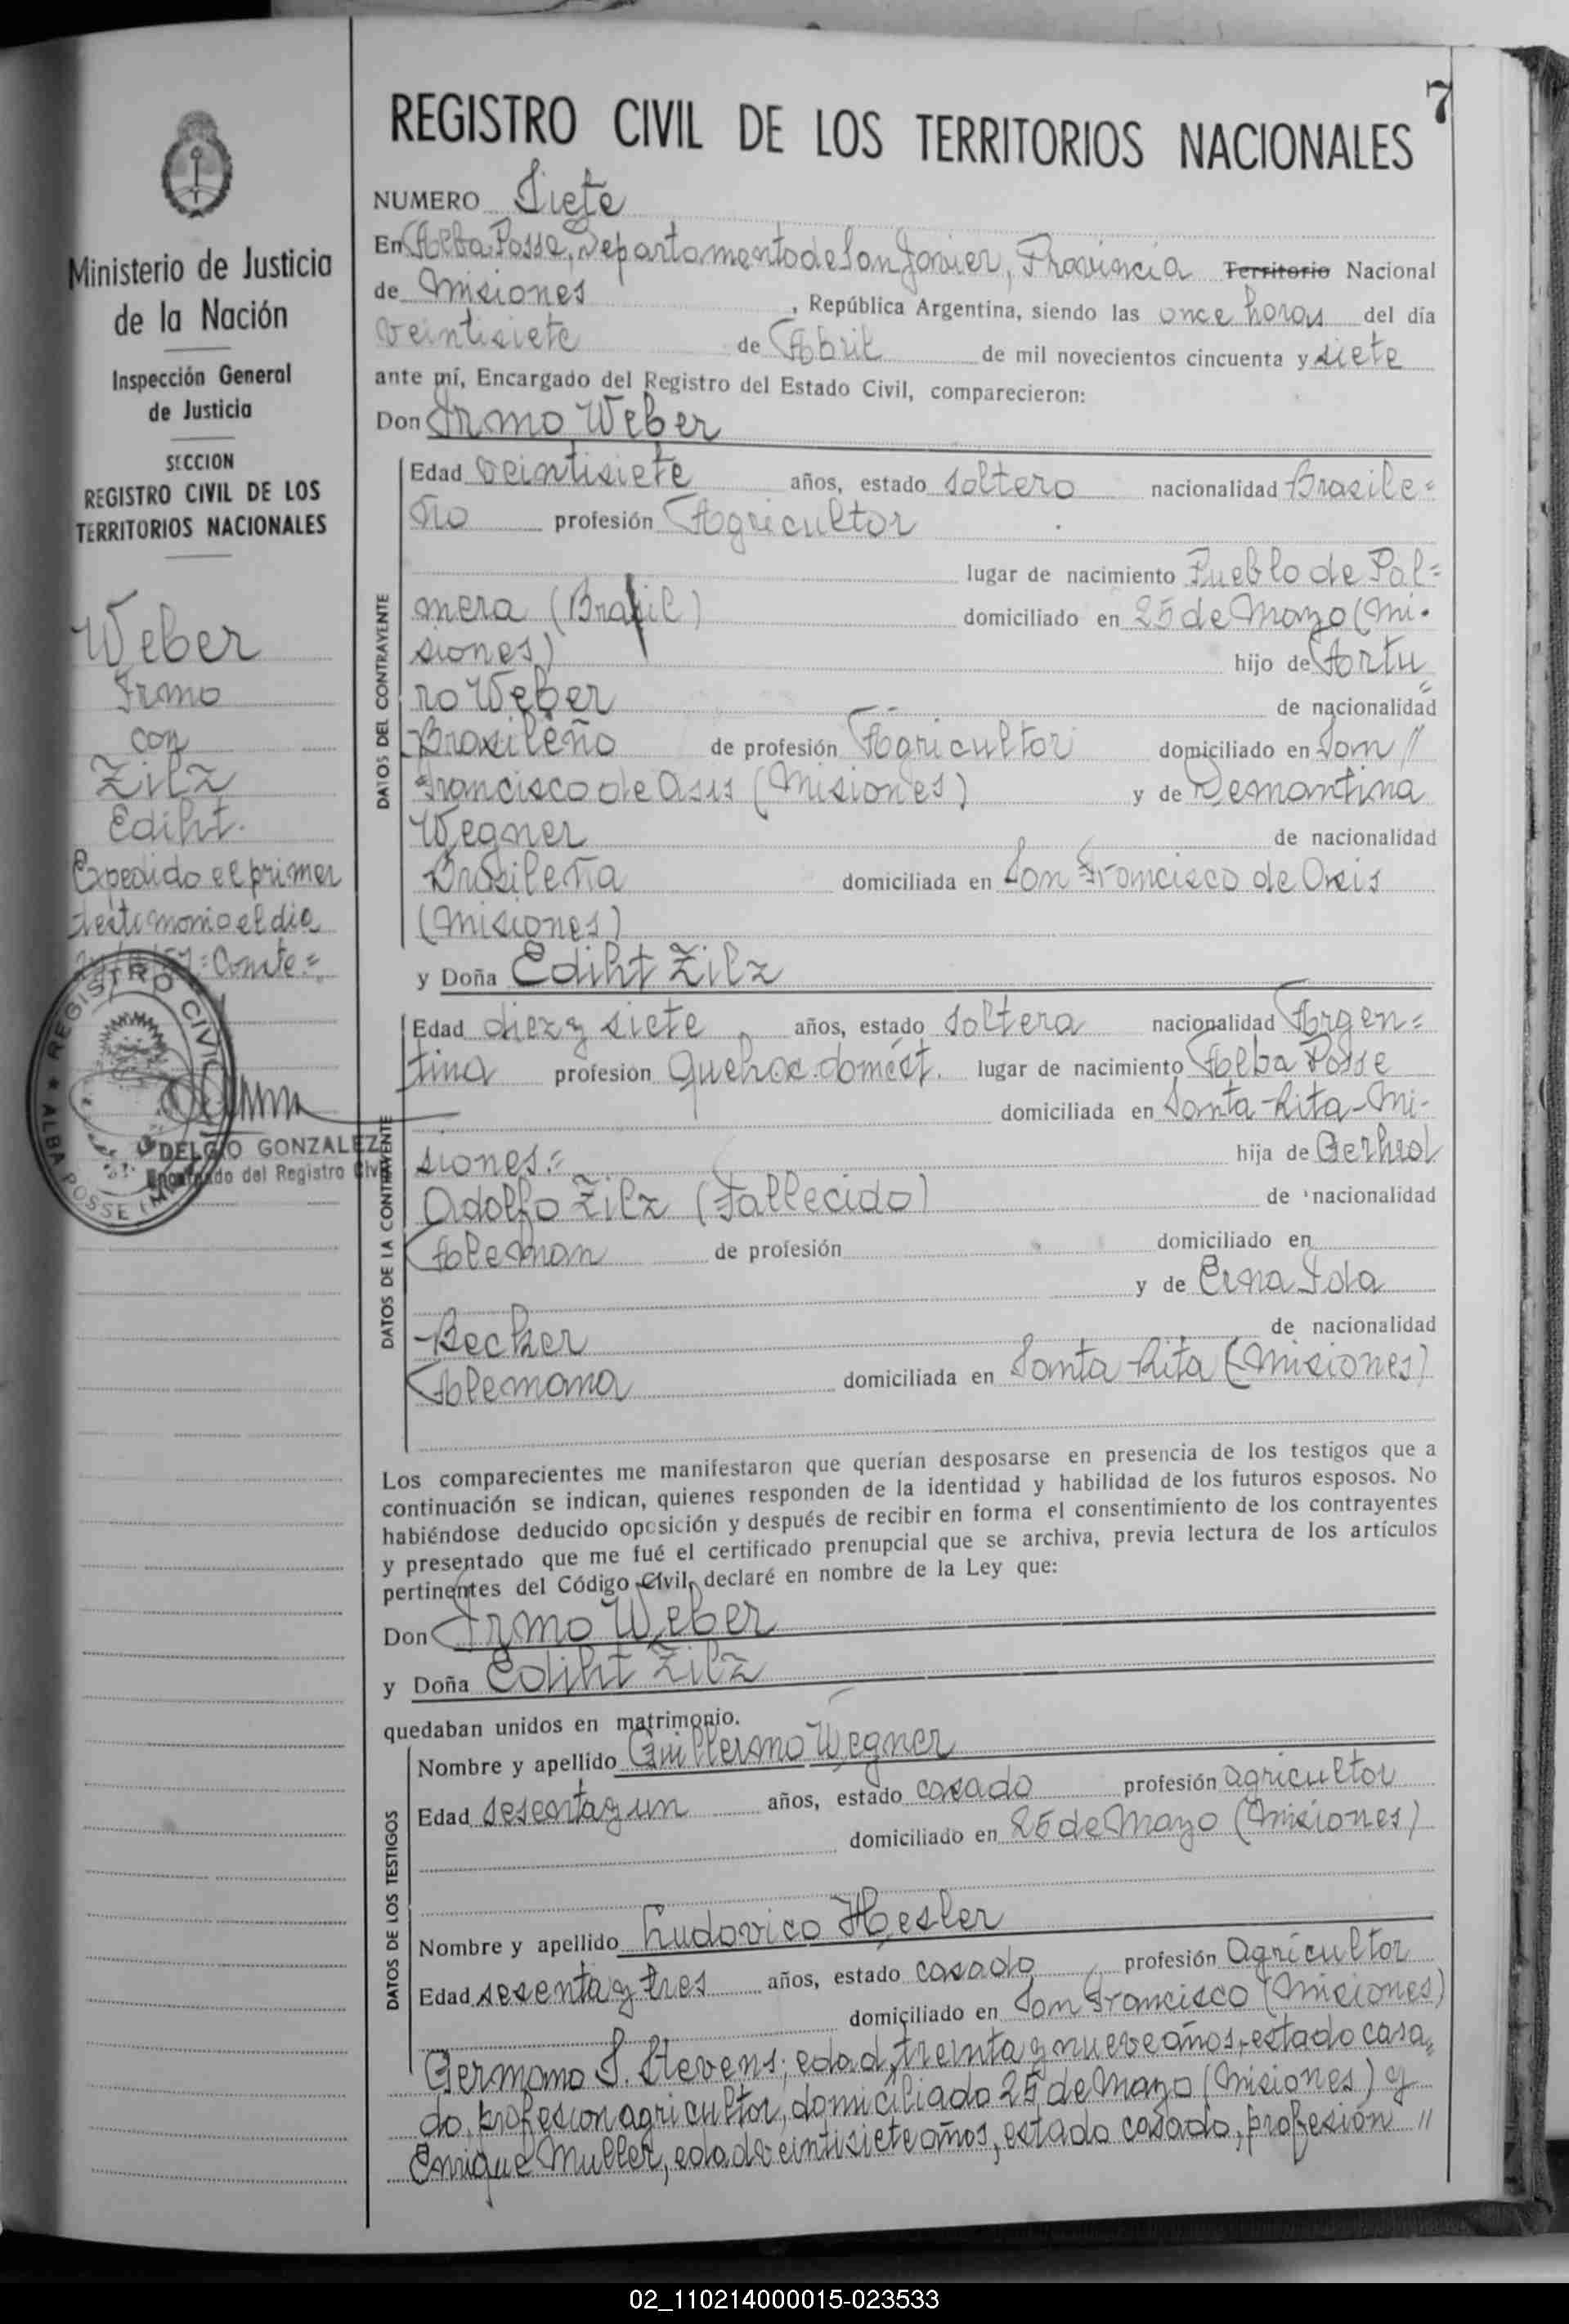 7
REGISTRO CIVIL DE LOS TERRITORIOS NACIONALES
Ministerio de Justicia
de la Nación
Inspección General
de Justicia
SECCION
REGISTRO CIVIL DE LOS
TERRITORIOS NACIONALES
Weber
Irmo
con
Zilz
Ediht.
Expedido el primer
testimonio el dia
57=Conste=
REGISTRO CIVIL
ALBA POSSE
DELGIO GONZALEZ
Encargado del Registro Civil
NUMERO Siete
En Alba Posse, Departamento de San Javier, Provincia Territorio Nacional
de Misiones, República Argentina, siendo las once horas del día
veintisiete de Abril de mil novecientos cincuenta y siete
ante mí, Encargado del Registro del Estado Civil, comparecieron:
Don Irmo Weber
DATOS DEL CONTRAYENTE
Edad veintisiete años, estado soltero nacionalidad Brasile=
ño profesión Agricultor
lugar de nacimiento Pueblo de Pal=
mera (Brasil) domiciliado en 25 de Mayo (Mi-
siones) hijo de Artu=
ro Weber de nacionalidad
Brasileño de profesión Agricultor domiciliado en San //
Francisco de Asis (Misiones) y de Demantina
Wegner de nacionalidad
Brasileña domiciliada en San Francisco de Asis
(Misiones)
y Doña Ediht Zilz
DATOS DE LA CONTRAYENTE
Edad diez y siete años, estado soltera nacionalidad Argen=
tina profesión Quehac. domést. lugar de nacimiento Alba Posse
domiciliada en Santa Rita-Mi-
siones.= hija de Gerhrd
Adolfo Zilz (Fallecido) de nacionalidad
Aleman de profesión domiciliado en
y de Erna Ida
Becker de nacionalidad
Alemana domiciliada en Santa Rita (Misiones)
Los comparecientes me manifestaron que querían desposarse en presencia de los testigos que a
continuación se indican, quienes responden de la identidad y habilidad de los futuros esposos. No
habiéndose deducido oposición y después de recibir en forma el consentimiento de los contrayentes
y presentado que me fué el certificado prenupcial que se archiva, previa lectura de los artículos
pertinentes del Código Civil, declaré en nombre de la Ley que:
Don Irmo Weber
y Doña Ediht Zilz
quedaban unidos en matrimonio.
DATOS DE LOS TESTIGOS
Nombre y apellido Guillermo Wegner
Edad sesenta y un años, estado casado profesión agricultor
domiciliado en 25 de Mayo (Misiones)
Nombre y apellido Ludovico Hesler
Edad sesenta y tres años, estado casado profesión Agricultor
domiciliado en San Francisco (Misiones)
Germano S. Stevens; edad, treinta y nueve años, estado casa=
do, profesion agricultor, domiciliado 25 de Mayo (Misiones) y
Enrique Muller, edad veintisiete años, estado casado, profesión //
02_110214000015-023533